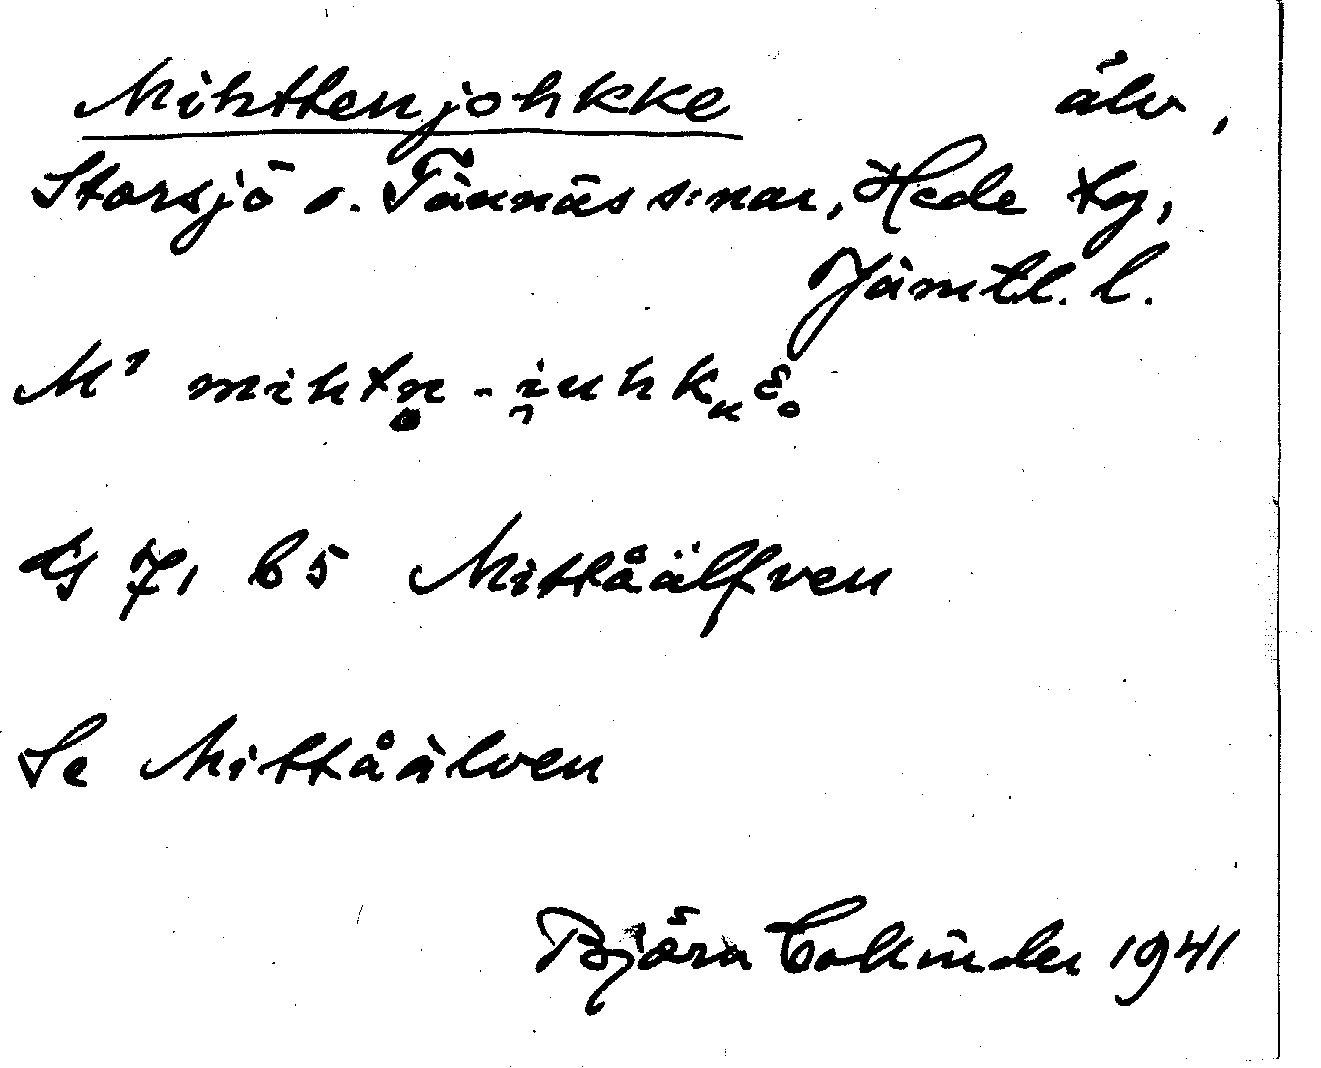 Mihttenjohkke älv,
Storsjö o. Tännäs s:nar, Hede tg,
Jämtl. l.
M¹ mihtn̥ - i̯uhkᵤ ɛ̥
65 Mittåälfven
Se Mittåälven
Björn Collinder 1941